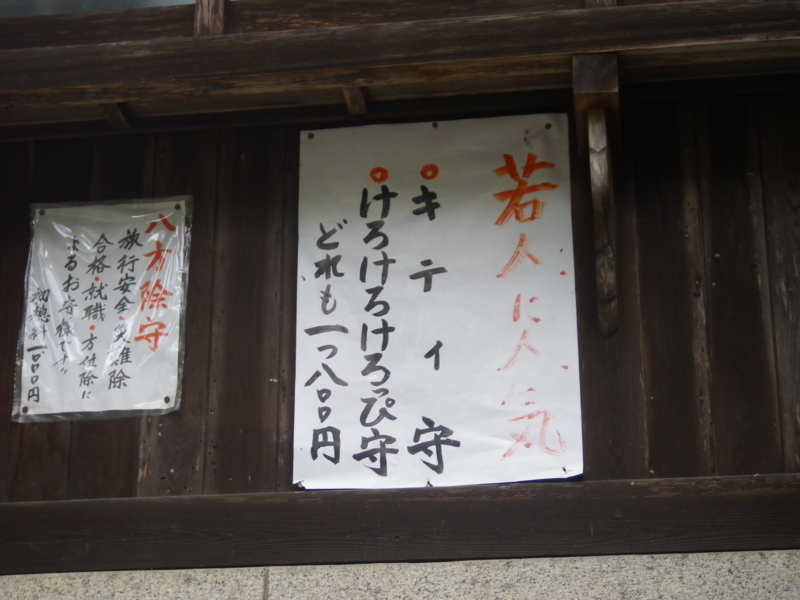 若人に人気
○キティ守
○けろけろけろっぴ守
どれも一つ八〇〇円
八方除守
旅行安全・災難除
合格・就職・方位除に
よるお守様です。
初穂料一、〇〇〇円